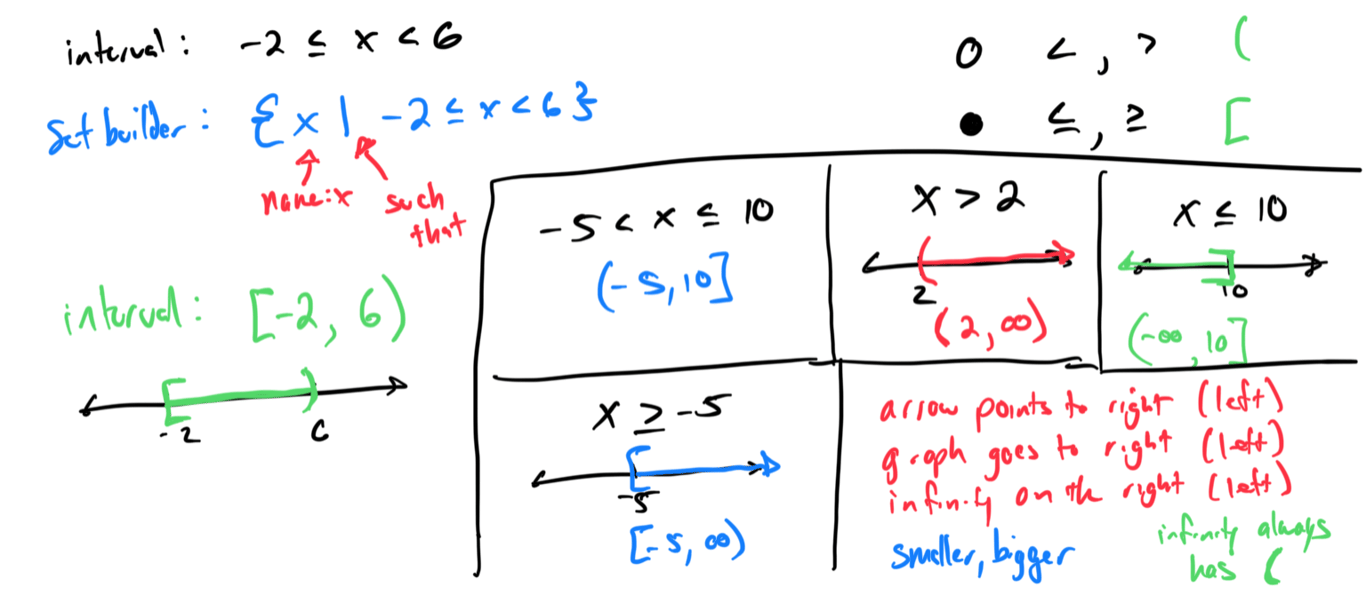 interval: -2 ≤ x < 6
Set builder: {x | -2 ≤ x < 6}
name: x
such
that
interval: [-2, 6)
-2 6
○ <, > (
● ≤, ≥ [
-5 < x ≤ 10
(-5, 10]
x > 2
2
(2, ∞)
x ≤ 10
10
(-∞, 10]
x ≥ -5
-5
[-5, ∞)
arrow points to right (left)
graph goes to right (left)
infinity on the right (left)
smaller, bigger
infinity always
has (